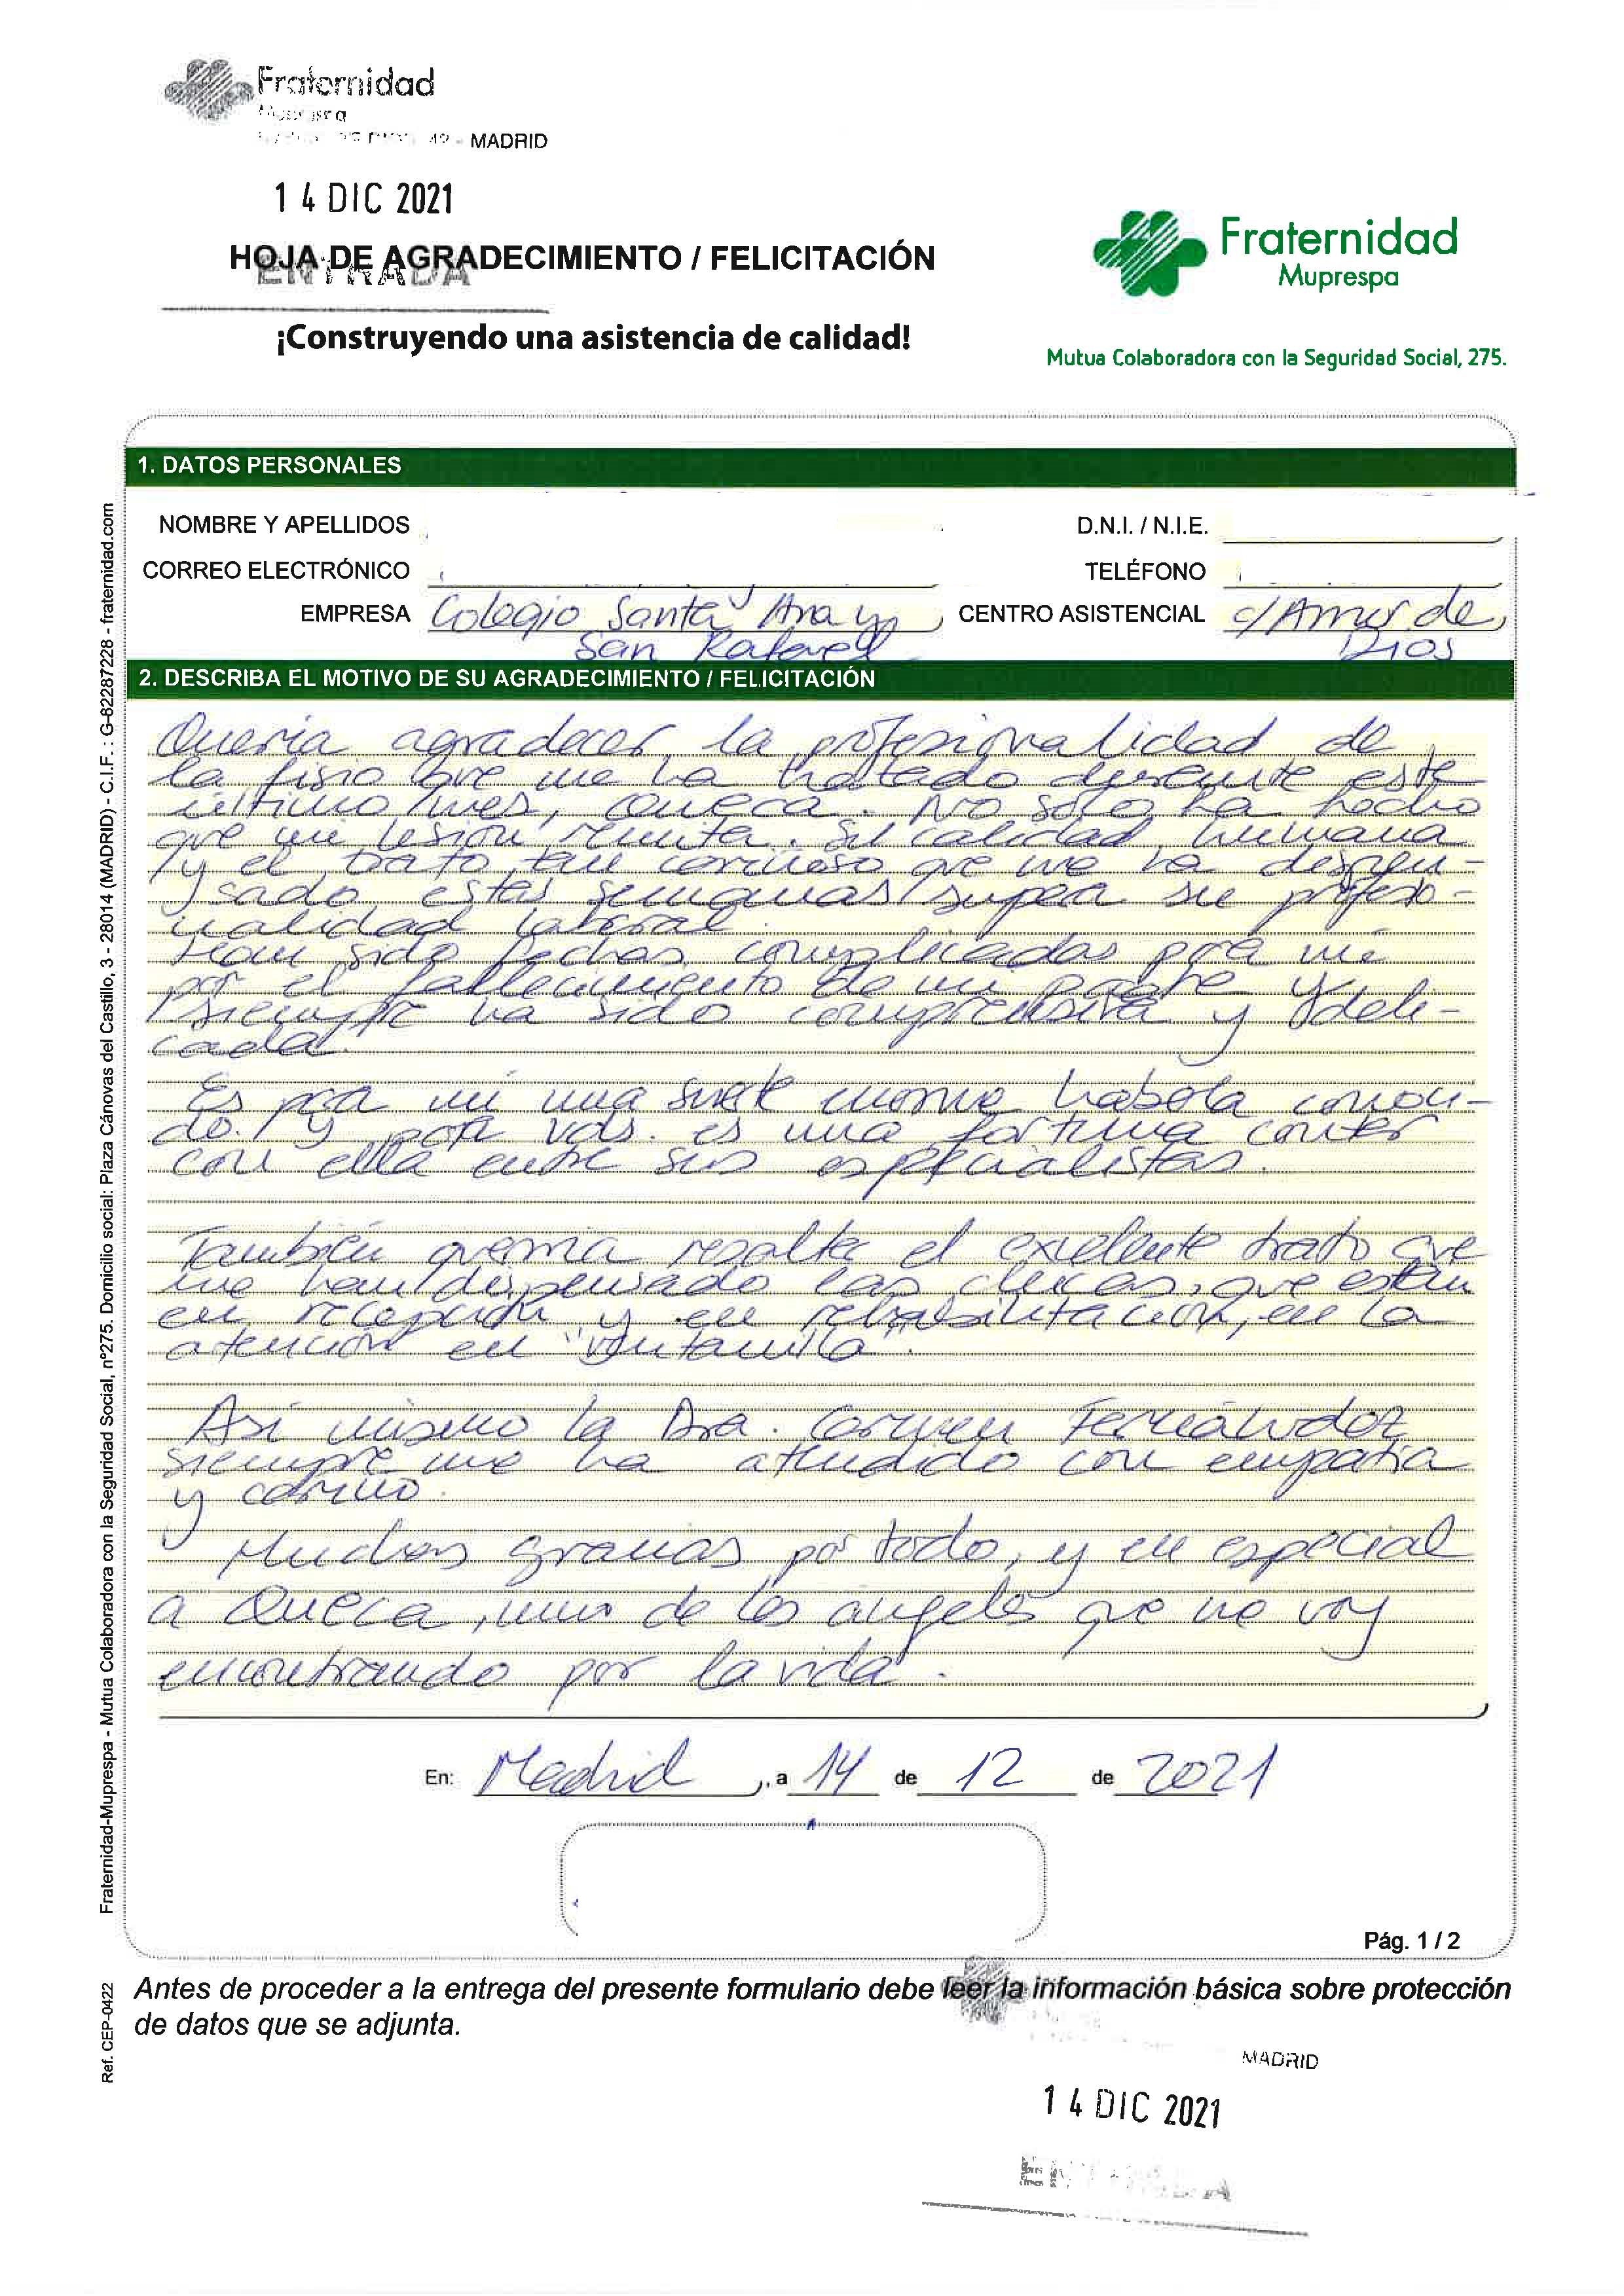 Fraternidad
MADRID
14 DIC 2021
HOJA DE AGRADECIMIENTO / FELICITACIÓN
ENTRADA
¡Construyendo una asistencia de calidad!
Fraternidad
Muprespa
Mutua Colaboradora con la Seguridad Social, 275.
1. DATOS PERSONALES
NOMBRE Y APELLIDOS D.N.I. / N.I.E.
CORREO ELECTRÓNICO TELÉFONO
EMPRESA Colegio Santa Ana y CENTRO ASISTENCIAL c/Amor de
San Rafael Dios
2. DESCRIBA EL MOTIVO DE SU AGRADECIMIENTO / FELICITACIÓN
Quería agradecer la profesionalidad de
la fisio que me ha tratado durante este
último mes, Queca. No solo ha hecho
que mi lesión remita. Su calidad humana
y el trato tan cariñoso que me ha dispen-
sado estas semanas supera su profesio-
nalidad laboral.
Han sido fechas complicadas para mí
por el fallecimiento de mi padre y
siempre ha sido comprensiva y deli-
cada.
Es para mí una suerte enorme haberla conoci-
do. Y para vds. es una fortuna contar
con ella entre sus especialistas.
También quería resaltar el excelente trato que
me han dispensado las chicas, que están
en recepción y en rehabilitación, en la
atención en "ventanilla".
Así mismo la Dra. Carmen Fernández
siempre me ha atendido con empatía
y cariño.
Muchas gracias por todo, y en especial
a Queca, uno de los ángeles que me voy
encontrando por la vida.
En: Madrid, a 14 de 12 de 2021
Pág. 1 / 2
Antes de proceder a la entrega del presente formulario debe leer la información básica sobre protección
de datos que se adjunta.
MADRID
14 DIC 2021
ENTRADA
Fraternidad-Muprespa - Mutua Colaboradora con la Seguridad Social, nº275. Domicilio social: Plaza Cánovas del Castillo, 3 - 28014 (MADRID) - C.I.F. : G-82287228 - fraternidad.com
Ref. CEP-0422